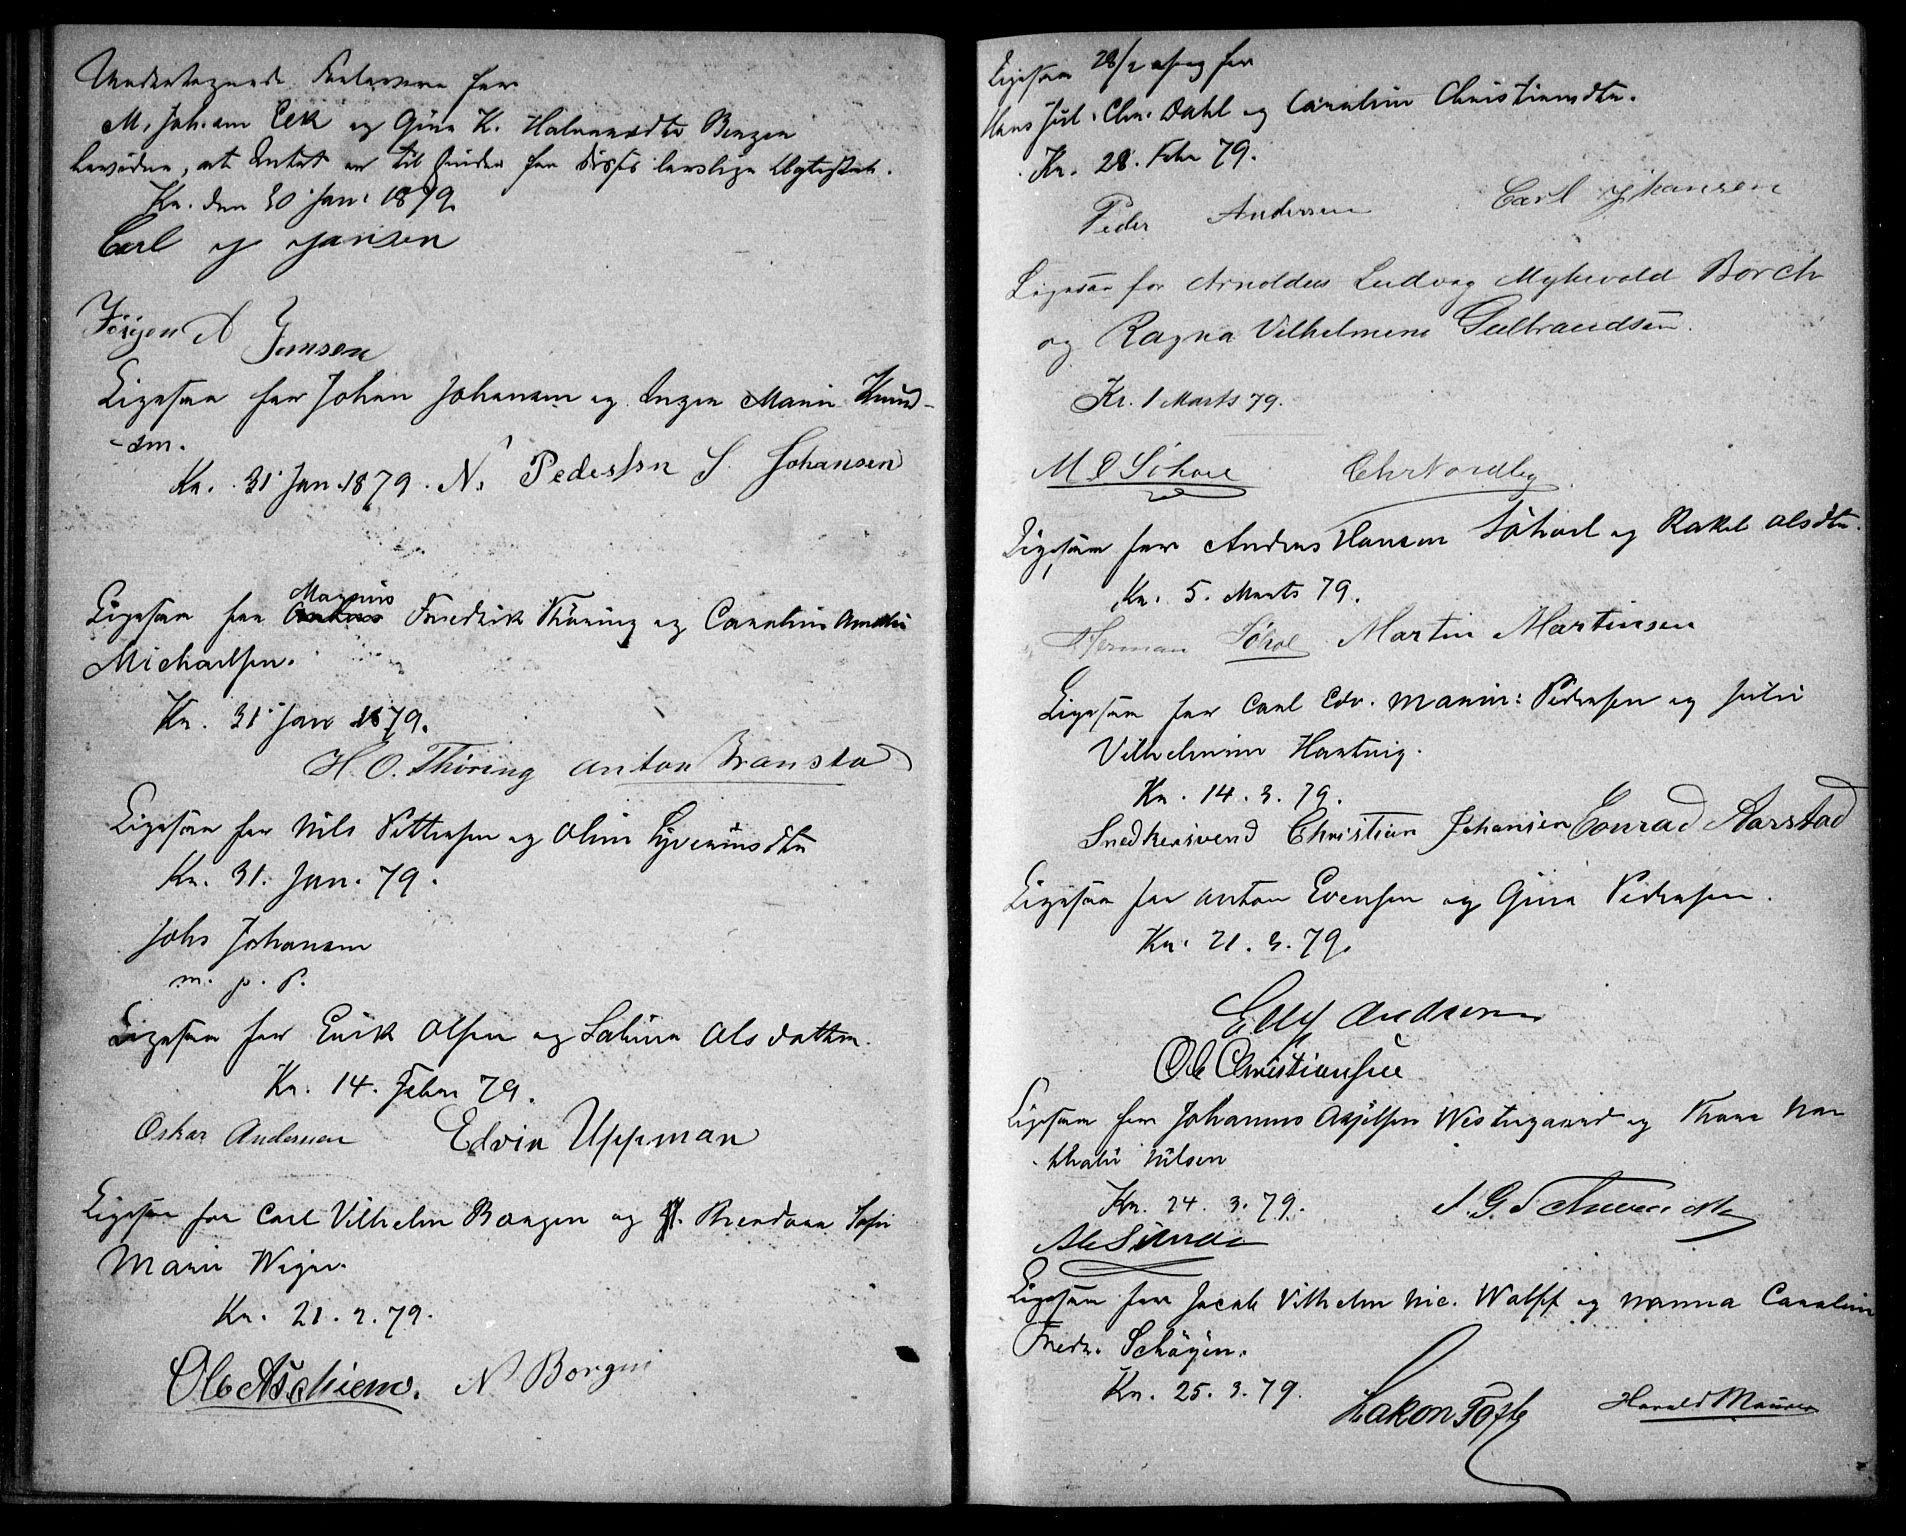 Undertegnede Forlovere for
M. Johan Eek og Gina K. Halvorsdtr Bergen
bevidne, at Intet er til Hinder for disses lovlige Ægteskab.
Kr. den 30 Jan. 1879.
Carl J Jansen
Jörgen A Jensen
Ligesaa for Johan Johansen og Inger Marie Knud-
-sen.
Kr. 31 Jan 1879. N. Pedersen S. Johansen
Ligesaa for Magnus Fredrik Thöring og Caroline Amalie
Michaelsen.
Kr. 31 Jan 1879.
H. O. Thöring Anton Branstad
Ligesaa for Nils Pettersen og Oline Syverinsdtr
Kr. 31. Jan. 79.
Johs Johansen
m. p. P.
Ligesaa for Erik Olsen og Sabina Olsdatter.
Kr. 14. Febr 79.
Oskar Andersen Edvin Uppman
Ligesaa for Carl Vilhelm Borgen og Thendora Sofie
Marie Weger.
Kr. 21. 2. 79.
Ole Aschiem. N Borgen
Ligesaa 28/2 for
Hans Jul. Chr. Dahl og Caroline Christiansdtr.
Kr. 28. Febr 79.
Peder Andersen Carl Johansen
Ligesaa for Arnoldus Ludvig Myhrvold Borch
og Ragna Vilhelmine Gulbrandsen.
Kr. 1 Marts 79.
M O Söhoel Chr Nordby
Ligesaa for Andreas Hansen Söhoel og Rakel Olsdtr.
Kr. 5. Marts 79.
Herman Söhoel Martin Martinsen
Ligesaa for Carl Edv. Marin: Pedersen og Julie
Vilhelmine Hartvig.
Kr. 14. 3. 79.
Snedkersvend Christian Johansen Conrad Aarstad
Ligesaa for Anton Evensen og Gina Pedersen.
Kr. 21. 3. 79.
Ellef Andersen
Ole Christiansen
Ligesaa for Johannes Axelsen Westergaard og Thora Na-
thalie Nilsen
Kr. 24. 3. 79.
Ole Sunde
Ligesaa for Jacob Vilhelm Nic. Wolff og Nanna Caroline
Fredr. Schöyen.
Kr. 25. 3. 79.
Hakon Tofte Harald Maurer